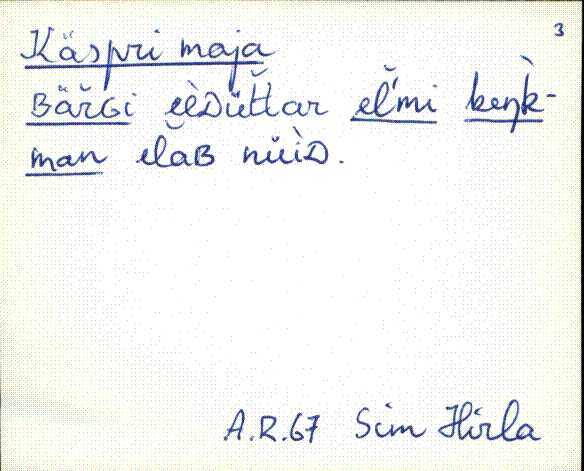 3
Käspri maja
Bär̆Gi ĕèDüt̆t̆lar el̆'mi keŋ̀k-
man elăB nŭìD.
A.R.67 Sim Hirla